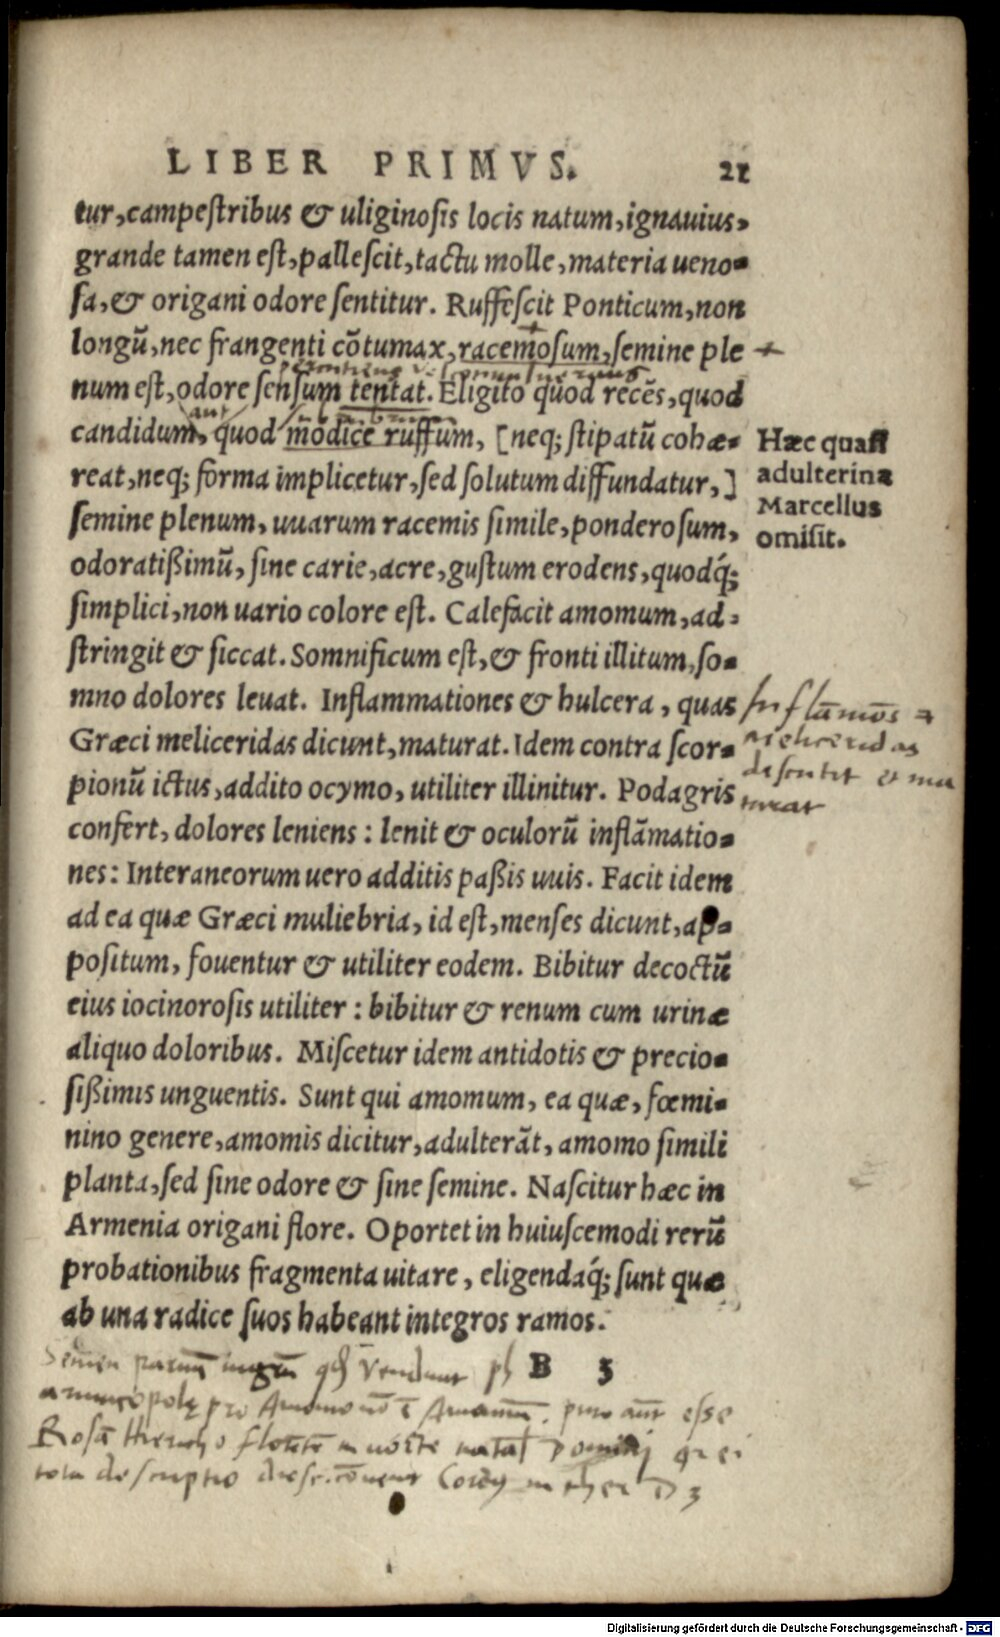 LIBER PRIMVS. 21
tur, campeſtribus & uliginoſis locis natum, ignauius,
grande tamen eſt, palleſcit, tactu molle, materia ueno-
ſa, & origani odore ſentitur. Ruffeſcit Ponticum, non
longũ, nec frangenti cõtumax, racemoſum, ſemine ple
num eſt, odore ſenſum tentat. Eligito quod recẽs, quod
aut
candidum, quod modice ruffum, [neq; ſtipatũ cohæ-
reat, neq; forma implicetur, ſed ſolutum diffundatur,]
Hæc quaſi
adulterina
Marcellus
omiſit.
ſemine plenum, uuarum racemis ſimile, ponderoſum,
odoratißimũ, ſine carie, acre, guſtum erodens, quodq́;
ſimplici, non uario colore eſt. Calefacit amomum, ad-
ſtringit & ſiccat. Somnificum eſt, & fronti illitum, ſo-
mno dolores leuat. Inflammationes & hulcera, quas
Græci meliceridas dicunt, maturat. Idem contra ſcor-
pionũ ictus, addito ocymo, utiliter illinitur. Podagris
Inflãmõs
meliceridas
diſcutit et ma
turat
confert, dolores leniens: lenit & oculorũ inflãmatio-
nes: Interaneorum uero additis paßis uuis. Facit idem
ad ea quæ Græci muliebria, id eſt, menſes dicunt, ap-
poſitum, fouentur & utiliter eodem. Bibitur decoctũ
eius iocinoroſis utiliter: bibitur & renum cum urinæ
aliquo doloribus. Miſcetur idem antidotis & precio-
ſißimis unguentis. Sunt qui amomum, ea quæ, fœmi-
nino genere, amomis dicitur, adulterãt, amomo ſimili
planta, ſed ſine odore & ſine ſemine. Naſcitur hæc in
Armenia origani flore. Oportet in huiuſcemodi rerũ
probationibus fragmenta uitare, eligendaq́; ſunt quæ
ab una radice ſuos habeant integros ramos.
B 3
Semen vendunt
pro Amomo esse
Rosã in nocte natal Domini
tota descriptio
Digitalisierung gefördert durch die Deutsche Forschungsgemeinschaft - DFG